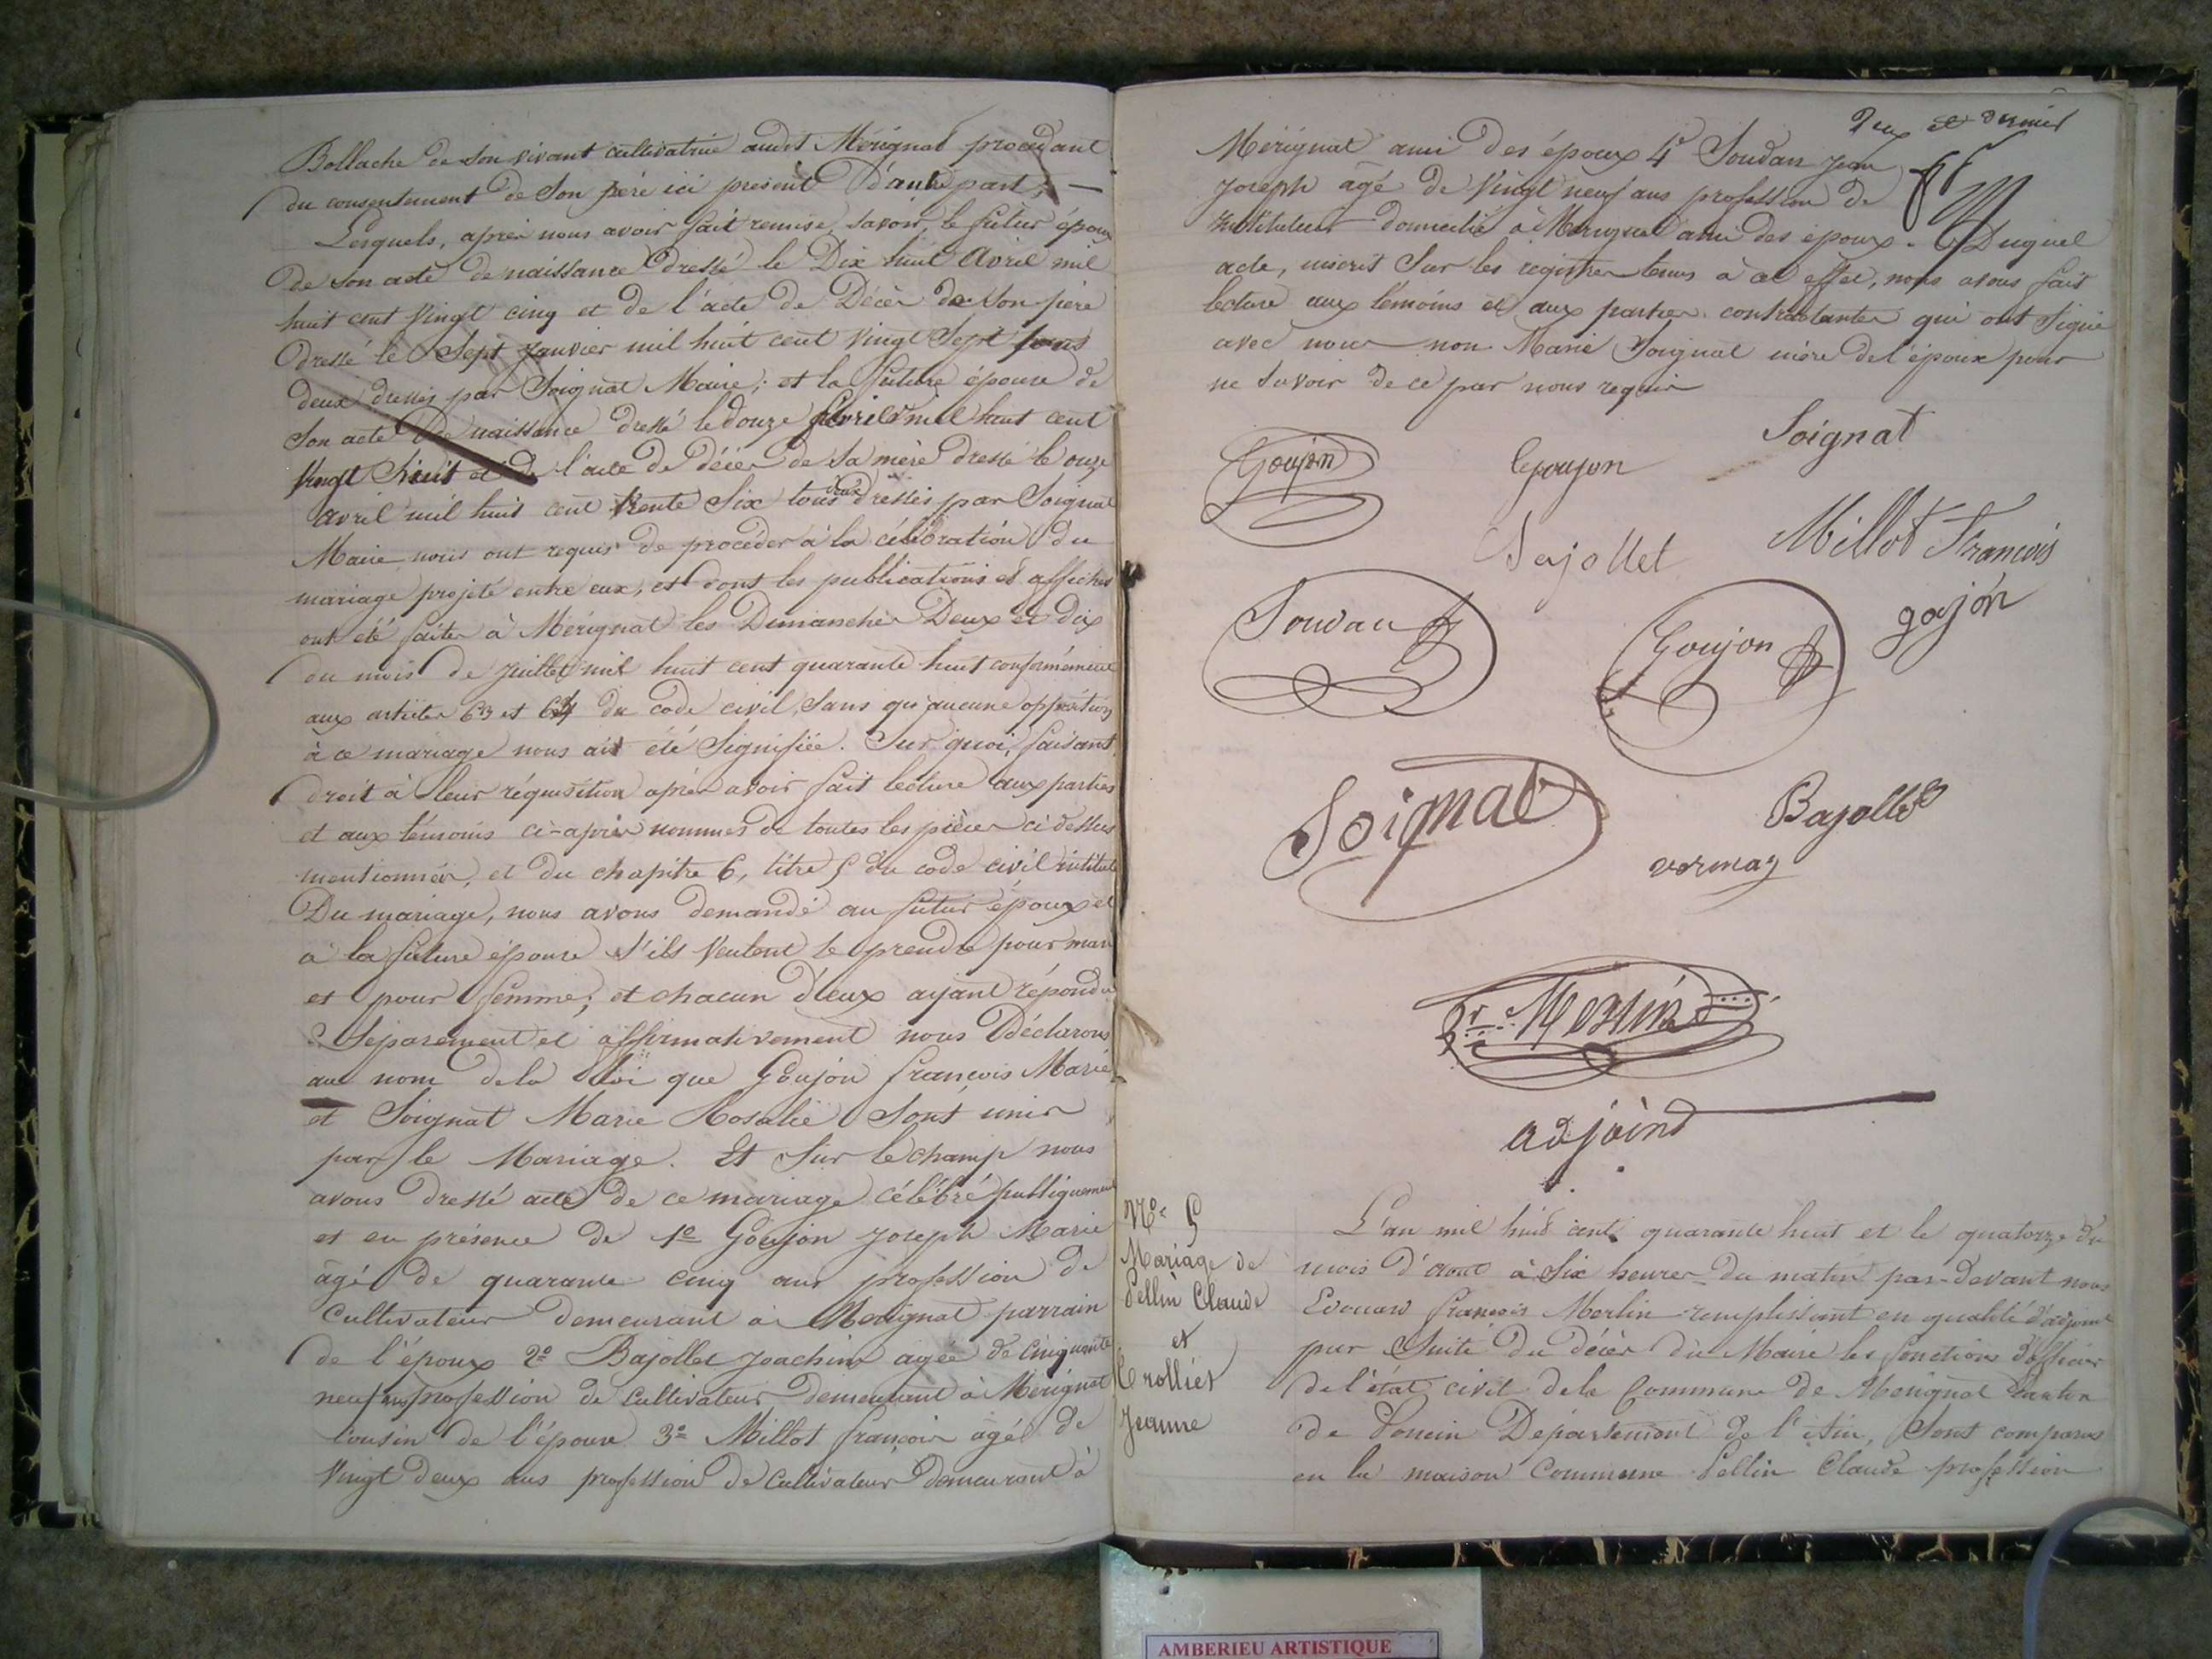 Bollache de son vivant cultivatrice audit Mérignat procédant
du consentement de son père ici présent d'autre part,
Lesquels, après nous avoir fait remise, savoir, le futur époux
de son acte de naissance dressé le Dix huit Avril mil
huit cent vingt cinq et de l'acte de Décès de son père
dressé le Sept janvier mil huit cent vingt Sept tous
deux dressés par Soignat Maire; et la future épouse de
son acte de naissance dressé le douze mil huit cent
vingt huit et de l'acte de décès de sa mère dressé le onze
avril mil huit cent trente Six tous deux dressés par Soignat
Maire nous ont requis de procéder à la célébration du
mariage projeté entre eux, et dont les publications et affiches
ont été faites à Mérignat les Dimanches Deux et dix
du mois de juillet mil huit cent quarante huit conformément
aux articles 63 et 64 du code civil, sans qu'aucune opposition
à ce mariage nous ait été signifiée. Sur quoi, faisant
droit à leur réquisition après avoir fait lecture aux parties
et aux témoins ci-après nommés de toutes les pièces ci dessus
mentionnées, et du chapitre 6, titre 5 du code civil intitulé
Du mariage, nous avons demandé au futur époux et
à la future épouse s'ils veulent se prendre pour mari
et pour femme; et chacun d'eux ayant répondu
séparement et affirmativement nous Déclarons
au nom de la loi que Goujon françois Marie
et Soignat Marie Rosalie Sont unis
par le Mariage. Et sur le champ nous
avons dressé acte de ce mariage célébré publiquement
et en présence de 1e Goujon Joseph Marie
âgé de quarante cinq ans profession de
Cultivateur demeurant à Merignat parrain
de l'époux 2e Bajollet Joachim agée de Cinquante
neuf ans profession de Cultivateur demeurant à Mérignat
cousin de l'épouse 3e Millot françois agé de
vingt deux ans profession de Cultivateur demeurant à
Deux et dernier
Mérignat ami des époux 4e Soudan Jean
Joseph âgé de vingt neuf ans profession de
instituteur domicilié à Mérignat ami des époux. Duquel
acte, inscrit sur les registres tenus à cet effet, nous avons fait
lecture aux témoins et aux parties contractantes qui ont signé
avec nous non Marie Soignat mère de l'époux pour
ne savoir de ce par nous requis
Soignat
Goujon Goujon
Bajollet Millot François
Soudan Goujon gojon
Soignat Bajollet
vormaz
Merlin
adjoint
No 5
Mariage de
Pellin Claude
et
Crollier
Jeanne
L'an mil huit cent quarante huit et le quatorze du
mois d'aout à Six heures du matin par-devant nous
Edouard françois Merlin remplissant en qualité d'adjoint
par Suite du décès du Maire les fonctions d'officier
de l'état civil de la Commune de Merignat Canton
de Poncin Département de l'Ain, Sont comparus
en la maison Commune Pellin Claude profession
AMBERIEU ARTISTIQUE